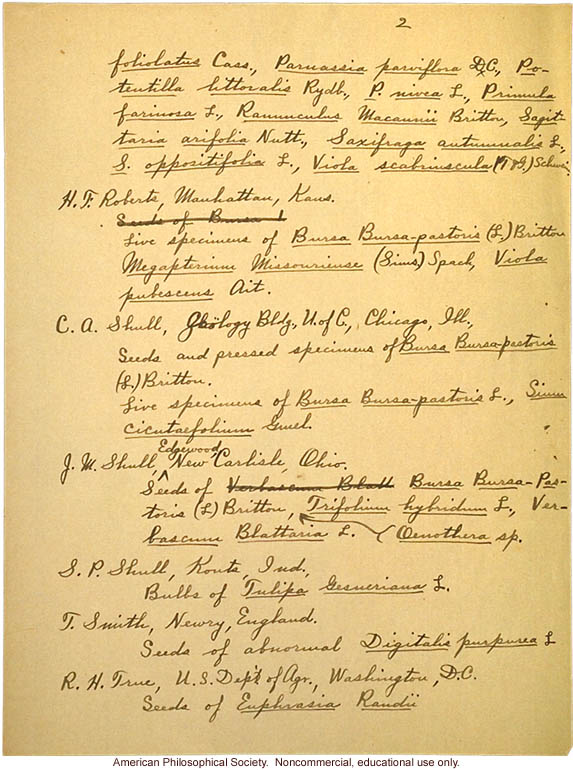 2
foliolatus Cass., Parnassia parviflora DC., Po-
tentilla littoralis Rydb., P. nivea L., Primula
farinosa L., Ranunculus Macounii Britton, Sagit-
taria arifolia Nutt., Saxifraga autumnalis L.,
S. oppositifolia L., Viola scabriuscula (T & G.) Schwein.
H. F. Roberts, Manhattan, Kans.
Seeds of Bursa
Live specimens of Bursa Bursa-pastoris (L.) Britton
Megapterium Missouriense (Sims.) Spach, Viola
pubescens Ait.
C. A. Shull, Geology Bldg., U. of C., Chicago, Ill.,
Seeds and pressed specimens of Bursa Bursa-pastoris
(L.) Britton.
Live specimens of Bursa Bursa-pastoris L., Sium
cicutaefolium Gmel.
Edgewood
J. M. Shull, New Carlisle, Ohio.
Seeds of Verbascum Blatt Bursa Bursa-Pas-
toris (L) Britton, Trifolium hybridum L., Ver-
bascum Blattaria L. Oenothera sp.
S. P. Shull, Kouts, Ind.,
Bulbs of Tulipa Gesneriana L.
T. Smith, Newry, England.
Seeds of abnormal Digitalis purpurea L
R. H. True, U.S. Dep't of Agr., Washington, D.C.
Seeds of Euphrasia Randii
American Philosophical Society. Noncommercial, educational use only.